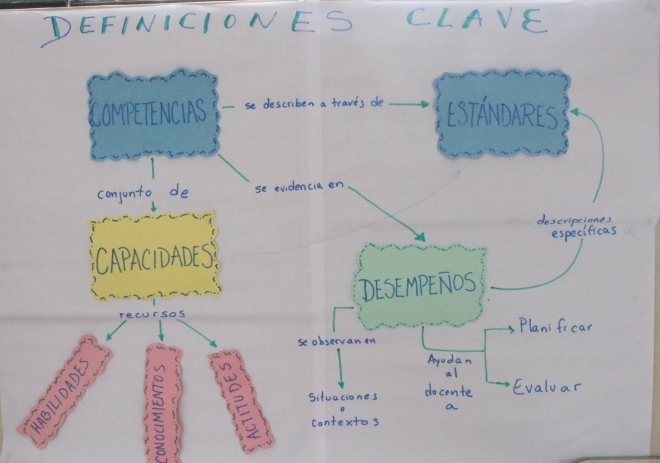 DEFINICIONES CLAVE
COMPETENCIAS
se describen a través de
ESTÁNDARES
conjunto de
se evidencia en
CAPACIDADES
descripciones
específicas
DESEMPEÑOS
recursos
HABILIDADES
CONOCIMIENTOS
ACTITUDES
se observan en
Situaciones
o
contextos
Ayudan
al
docente
a
Planificar
Evaluar